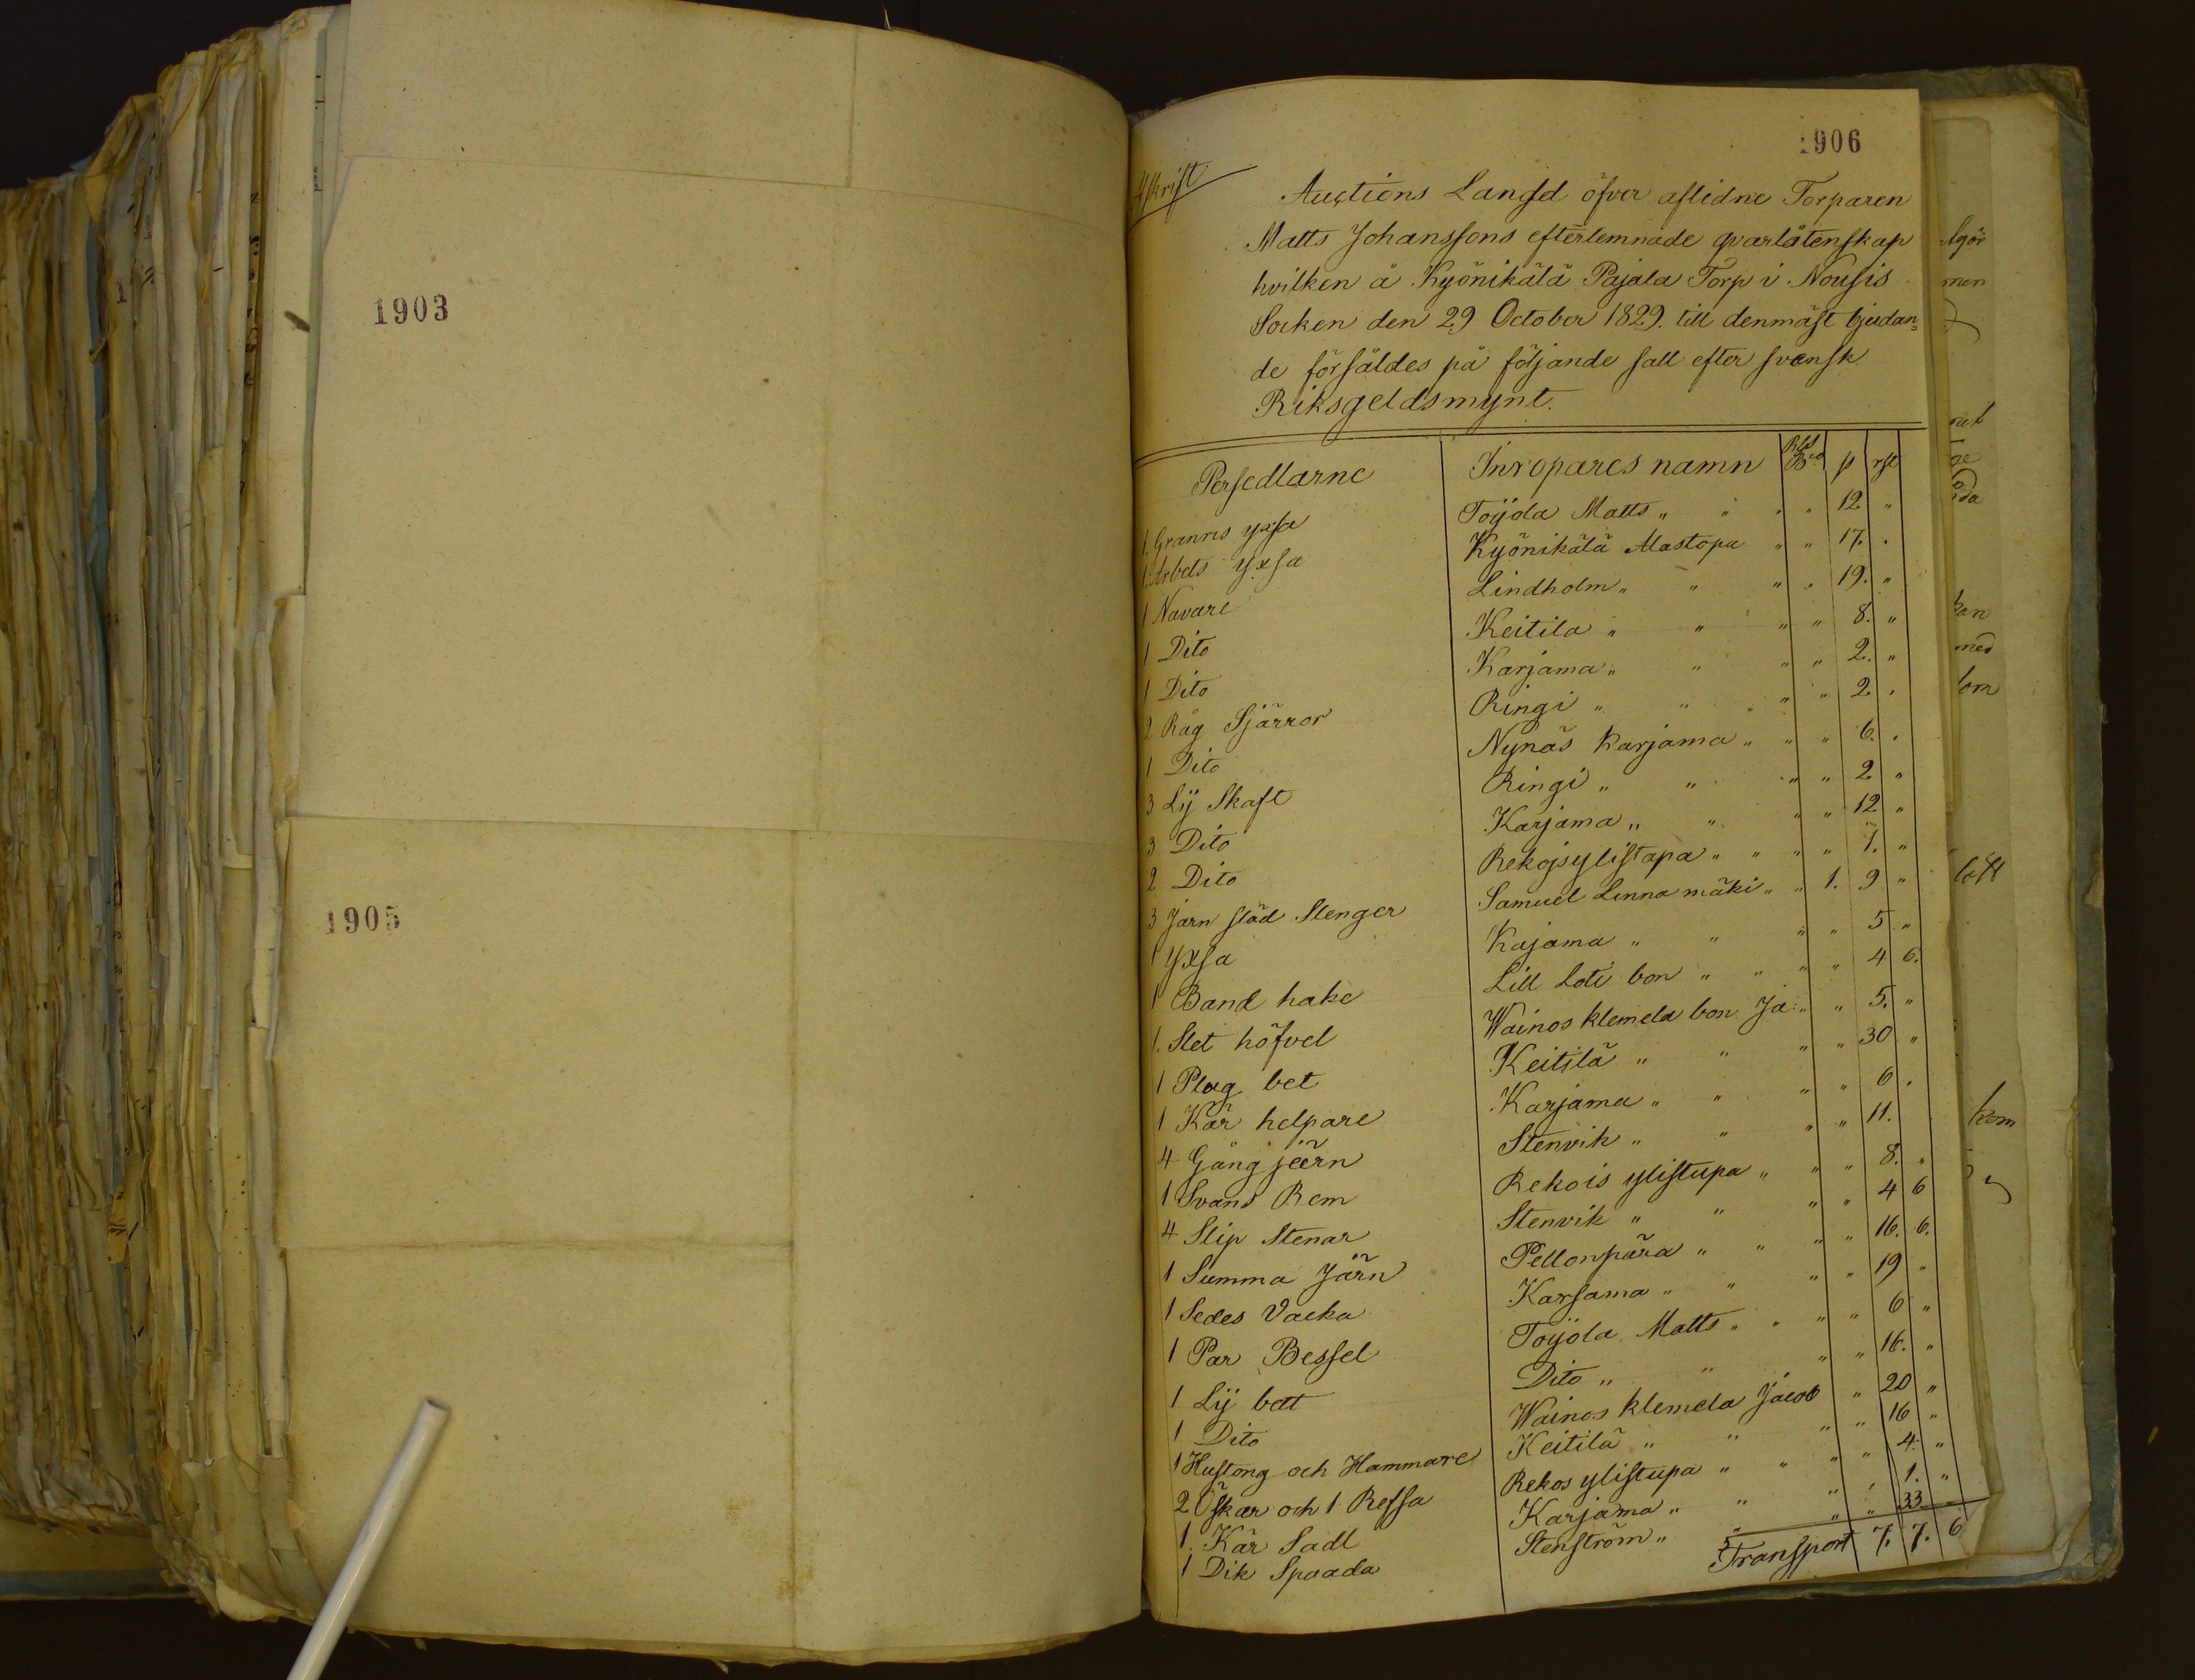 1903
1905
1906
Afskrift
Auctions Längd öfver aflidne Torparen
Matts Johanssons efterlemnade qvarlåtenskap
hvilken å Kyönikälä Pajala Torp i Nousis
Socken den 29 October 1829. till denmäst bjudan=
de försåldes på följande satt efter svensk
Riksgeldsmynt.
Persedlarne Inropares namn Rd p rst
1. Granris yxsa Töijola Matts „ „ „ „ 12 „
1. Arbets Yxsa Kyönikälä Alastopa „ „ 17. „
1 Navare Lindholm „ „ „ „ 19. „
1 Dito Keitila „ „ „ „ 8. „
1 Dito Karjama „ „ „ „ 2. „
2 Råg Sjärror Ringi „ „ „ „ 2 „
1 Dito Nynäs Karjama „ „ „ 6. „
3 Lij Skaft Ringi „ „ „ „ 2 „
3 Dito Karjama „ „ „ „ 12 „
2 Dito Rekojsylistapa „ „ „ „ 7. „
3 Järn städ Stenger Samuel Linnamäki „ „ 1. 9 „
1 Yxsa Kajama „ „ „ „ 5 „
1 Band hake Lill Loti bon „ „ „ „ 4 6.
1. Slet höfvel Wainos klemela bon Ja: „ „ 5. „
1 Plog bet Keitilä „ „ „ „ 30 „
1 Kär helpare Karjama „ „ „ „ 6 „
4 Gång järn Stenvik „ „ „ „ 11.
1 Svans Rem Rekois ylistupa „ „ „ 8. „
4 Slip Stenar Stenvik „ „ „ „ 4 6
1 Summa Järn Pellonpära „ „ „ „ 16. 6.
1 Sedes Vacka Karjama „ „ „ „ 19 „
1 Par Bessel Töijola Matts „ „ „ „ 6 „
1 Lij bett Dito „ „ „ „ 16. „
1 Dito Wainos klemela Jacob „ 20 „
1 Hustong och Hammare Keitilä „ „ „ „ 16 „
2 Öskar och 1 Ressa Rekos ylistupa „ „ „ „ 4. „
1. Kär Sadl Karjama „ „ „ „ 1. „
1 Dik Spaada Stenström „ „ „ „ 33 „
Transport 7. 7. 6